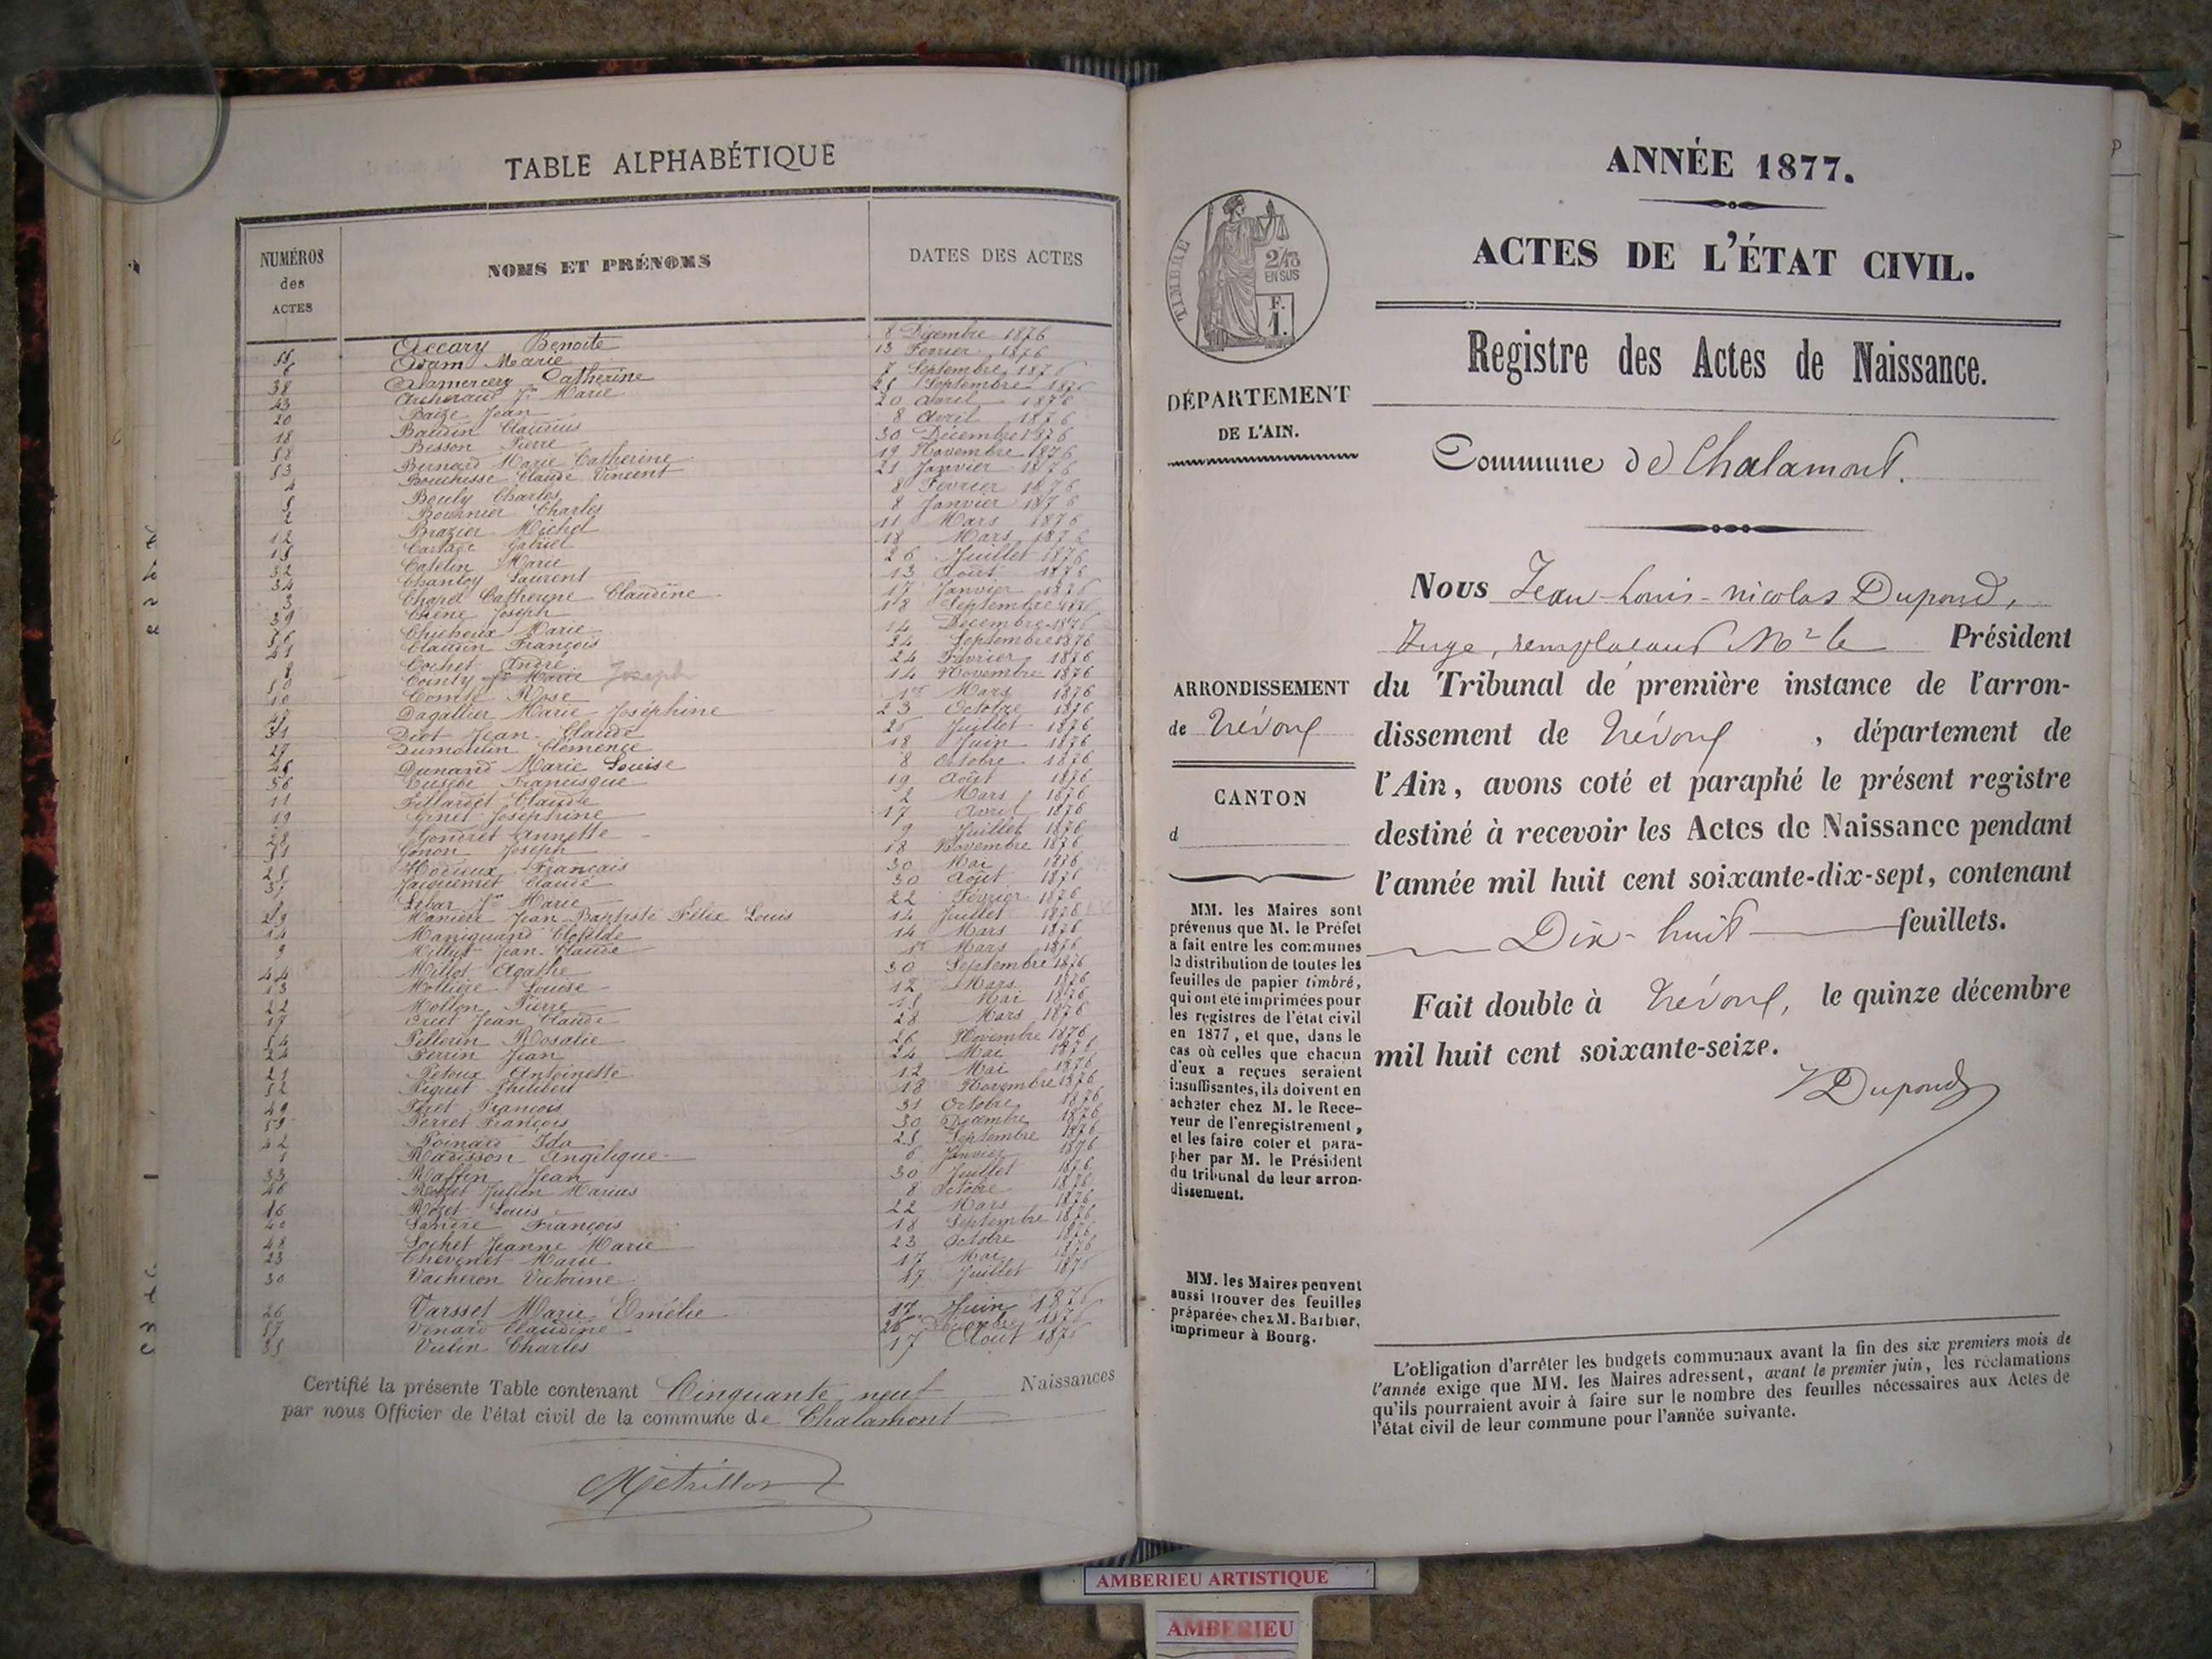 TABLE ALPHABÉTIQUE
NUMÉROS
des
ACTES
NOMS ET PRÉNOMS
DATES DES ACTES
Accary Benoite 8 Décembre 1876
6 Adam Marie 13 Fevrier 1876
38 Catherine 7 Septembre 1876
43 Marie Septembre 1876
20 Baize Jean 20 Avril 1876
18 Baudin Claudius 8 Avril 1876
58 Besson Pierre 30 Décembre 1876
53 Bernard Marie Catherine 19 Novembre 1876
4 Bouchisse Claude Vincent 21 Janvier 1876
5 Bouly Charles 8 Février 1876
2 Bournier Charles 8 Janvier 1876
12 Brazier Michel 11 Mars 1876
15 Gabriel 18 Mars 1876
32 Catelin Marie 26 Juillet 1876
34 Chanloy Laurent 13 Août 1876
3 Charel Catherine Claudine 17 Janvier 1876
39 Chêne Joseph 18 Septembre 1876
56 Marie 14 Décembre 1876
41 Claudin François 24 Septembre 1876
8 Cochet André 24 Février 1876
50 Marie Joseph 14 Novembre 1876
10 Comte Rose 1er Mars 1876
47 Dagallier Marie Joséphine 23 Octobre 1876
31 Diot Jean Claude 25 Juillet 1876
27 Dumoulin Clémence 18 Juin 1876
45 Dunand Marie Louise 8 Octobre 1876
36 Eusèbe Francisque 19 Août 1876
11 Fillardet Claude 2 Mars 1876
19 Ginet Joséphine 17 Avril 1876
28 Gondret Annette 9 Juillet 1876
51 Gonon Joseph 18 Novembre 1876
25 Hodieux Français 30 Mai 1876
37 Jacquemet Claude 30 Août 1876
Lebar Marie 22 Février 1876
29 Manière Jean-Baptiste Félix Louis 14 Juillet 1876
14 Maniquand Clotilde 14 Mars 1876
9 Jean Claude 1er Mars 1876
44 Millet Agathe 30 Septembre 1876
13 Mollière Louise 12 Mars 1876
22 Mollon Pierre 15 Mai 1876
17 Jean Claude 28 Mars 1876
54 Pellerin Rosalie 26 Novembre 1876
24 Perrin Jean 24 Mai 1876
21 Petoux Antoinette 12 Mai 1876
52 Piquet Philibert 18 Novembre 1876
49 François 31 Octobre 1876
59 Perret François 30 Décembre 1876
42 Poinard Ida 25 Septembre 1876
1 Radisson Angélique 6 Janvier 1876
33 Raffin Jean 30 Juillet 1876
46 Julien Marius 8 Octobre 1876
16 Rozet Louis 22 Mars 1876
40 François 18 Septembre 1876
48 Sochet Jeanne Marie 23 Octobre 1876
23 Thevenet Marie 17 Mai 1876
30 Vacheron Victorine 17 Juillet 1876
26 Varsset Marie Emélie 17 Juin 1876
57 Venard Claudine 26 Décembre 1876
35 Vulin Charles 17 Août 1876
Certifié la présente Table contenant Cinquante neuf Naissances
par nous Officier de l'état civil de la commune de Chalamont
Métrillon
ANNÉE 1877.
ACTES DE L'ÉTAT CIVIL.
Registre des Actes de Naissance.
TIMBRE
2/10
EN SUS
F.
1.
DÉPARTEMENT
DE L'AIN.
Commune de Chalamont.
Nous Jean-Louis-nicolas Dupond,
Juge, remplaçant Mr le Président
du Tribunal de première instance de l'arron-
dissement de Trévoux, département de
l'Ain, avons coté et paraphé le présent registre
destiné à recevoir les Actes de Naissance pendant
l'année mil huit cent soixante-dix-sept, contenant
Dix-huit feuillets.
Fait double à Trévoux, le quinze décembre
mil huit cent soixante-seize.
Dupond
ARRONDISSEMENT
de Trévoux
CANTON
d
MM. les Maires sont
prévenus que M. le Préfet
a fait entre les communes
la distribution de toutes les
feuilles de papier timbré,
qui ont été imprimées pour
les registres de l'état civil
en 1877, et que, dans le
cas où celles que chacun
d'eux a reçues seraient
insuffisantes, ils doivent en
acheter chez M. le Rece-
veur de l'enregistrement,
et les faire coter et para-
pher par M. le Président
du tribunal de leur arron-
dissement.
MM. les Maires peuvent
aussi trouver des feuilles
préparées chez M. Barbier,
imprimeur à Bourg.
L'obligation d'arrêter les budgets communaux avant la fin des six premiers mois de
l'année exige que MM. les Maires adressent, avant le premier juin, les réclamations
qu'ils pourraient avoir à faire sur le nombre des feuilles nécessaires aux Actes de
l'état civil de leur commune pour l'année suivante.
AMBERIEU ARTISTIQUE
AMBERIEU